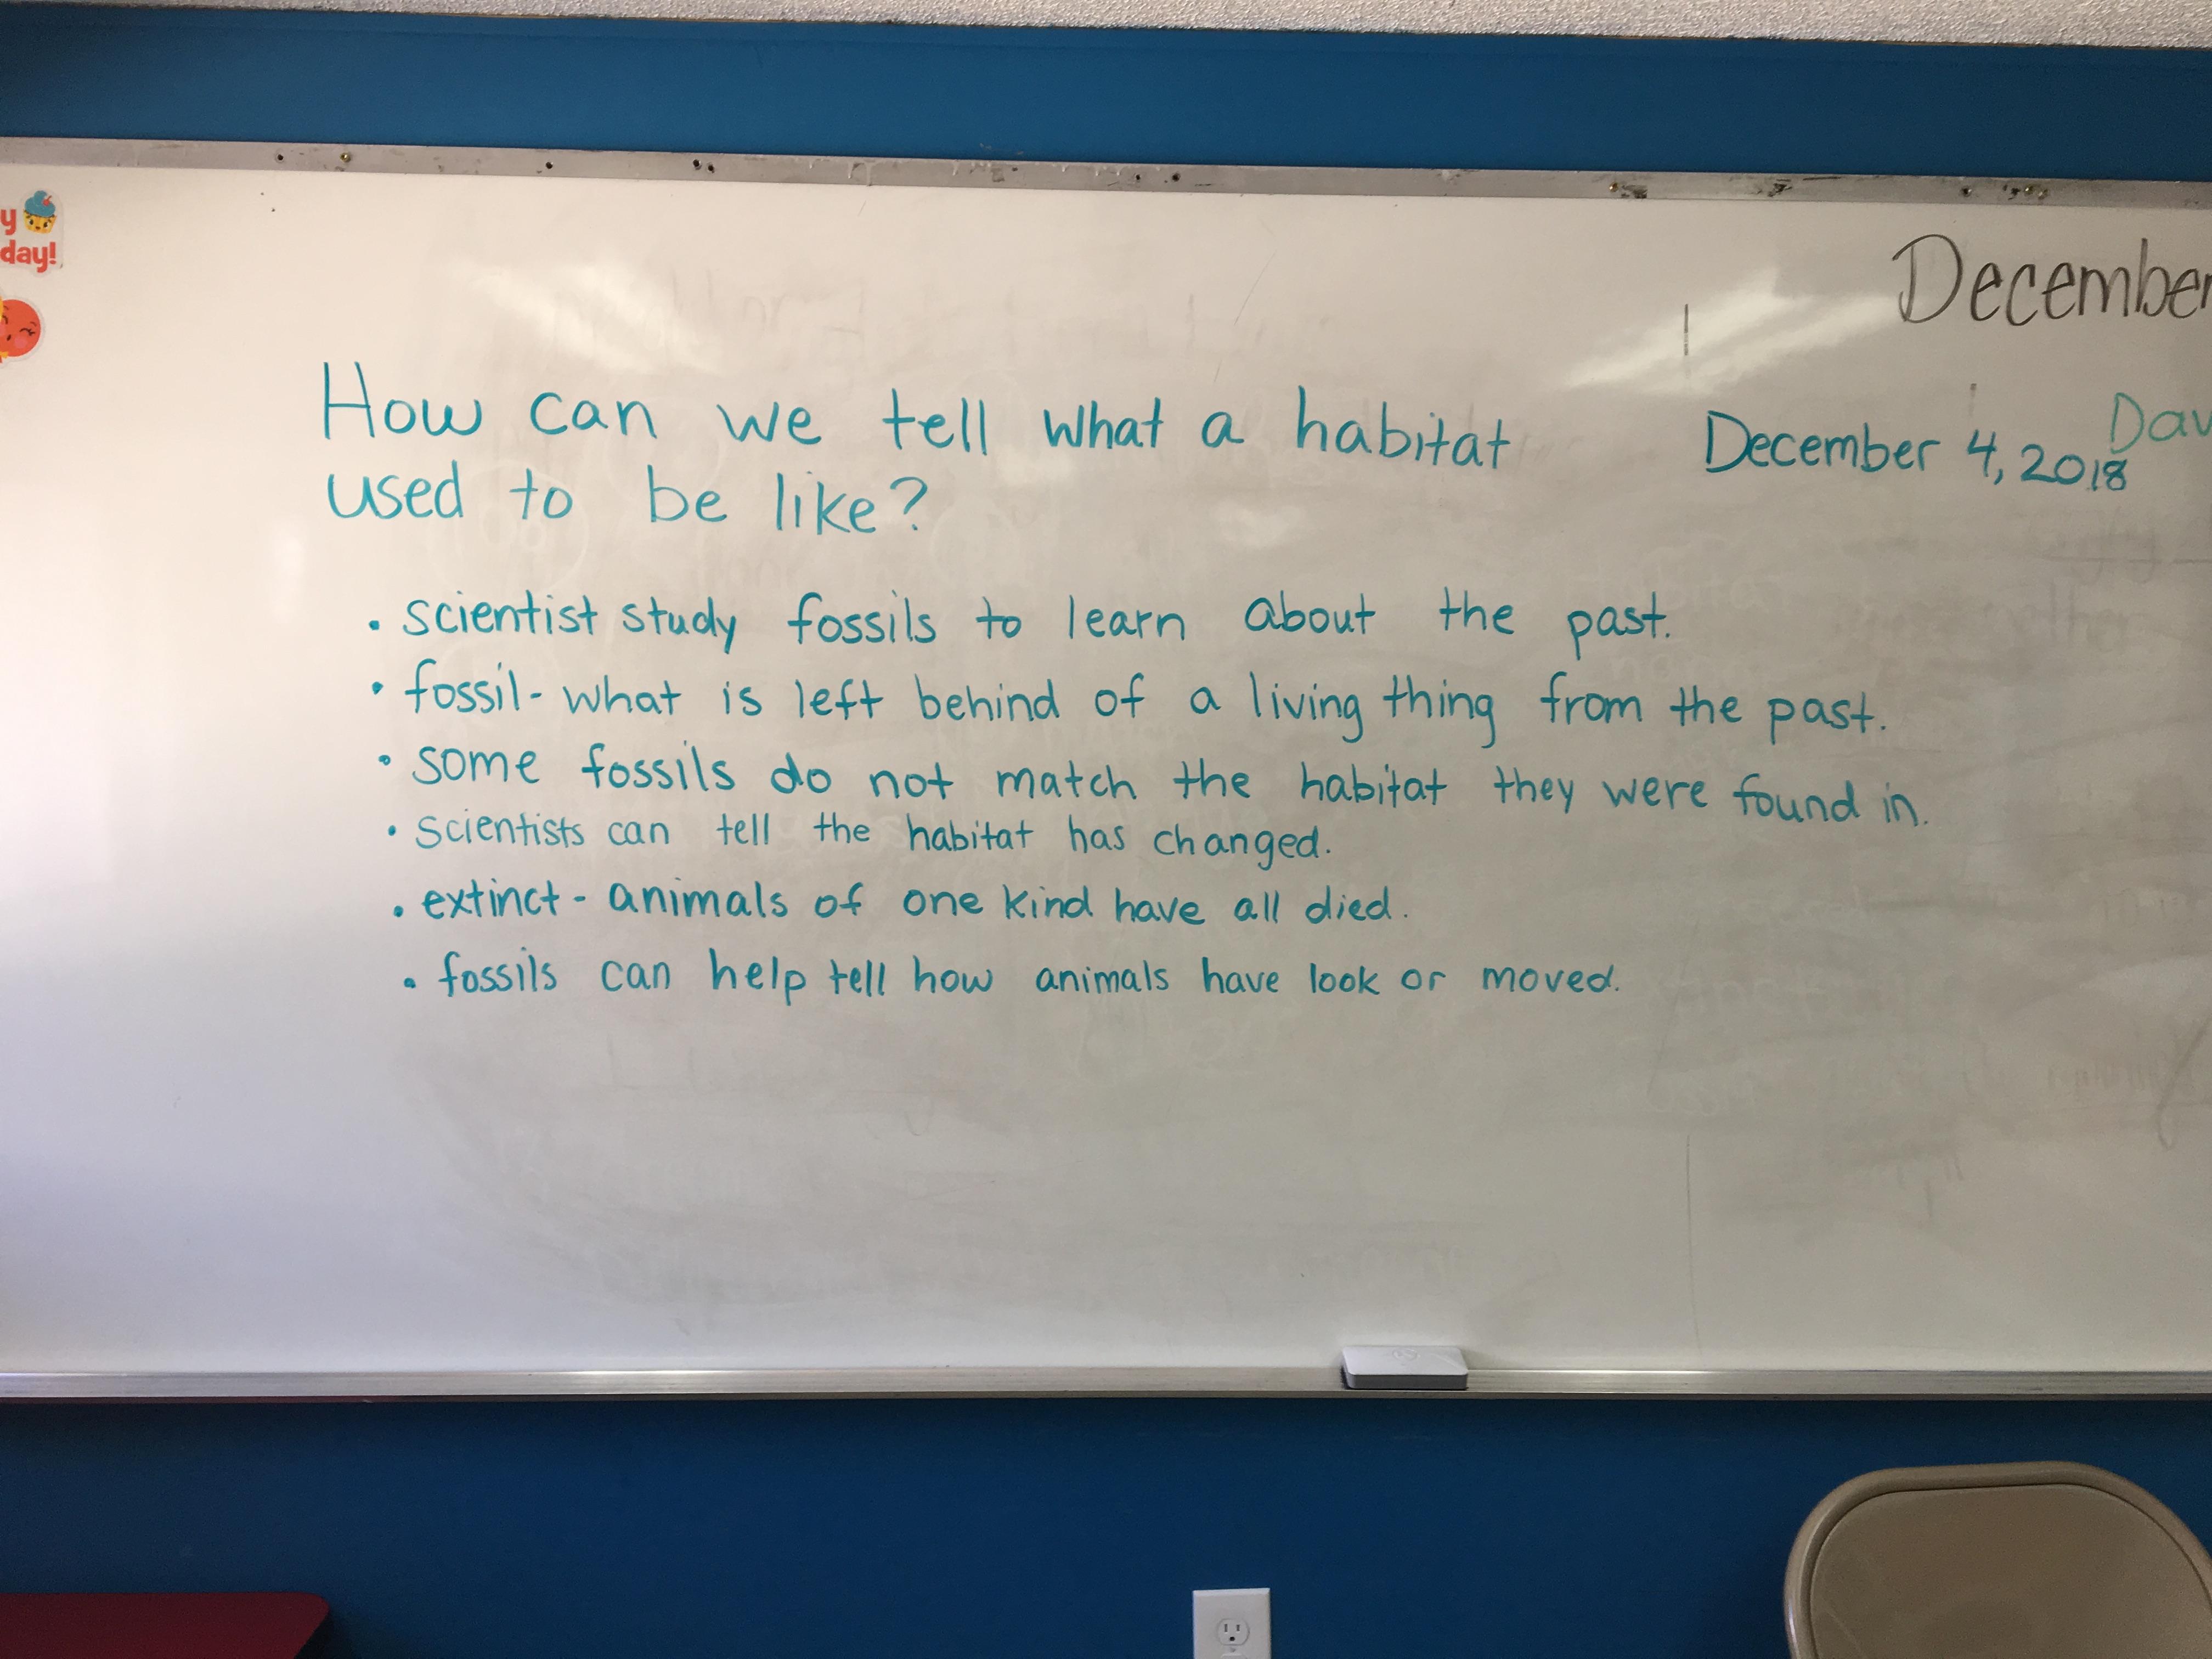 y
day!
December
How can we tell what a habitat
used to be like?
December 4, 2018
Dav
. scientist study fossils to learn about the past.
• fossil- what is left behind of a living thing from the past.
• some fossils do not match the habitat they were found in.
• scientists can tell the habitat has changed.
. extinct - animals of one kind have all died.
• fossils can help tell how animals have look or moved.